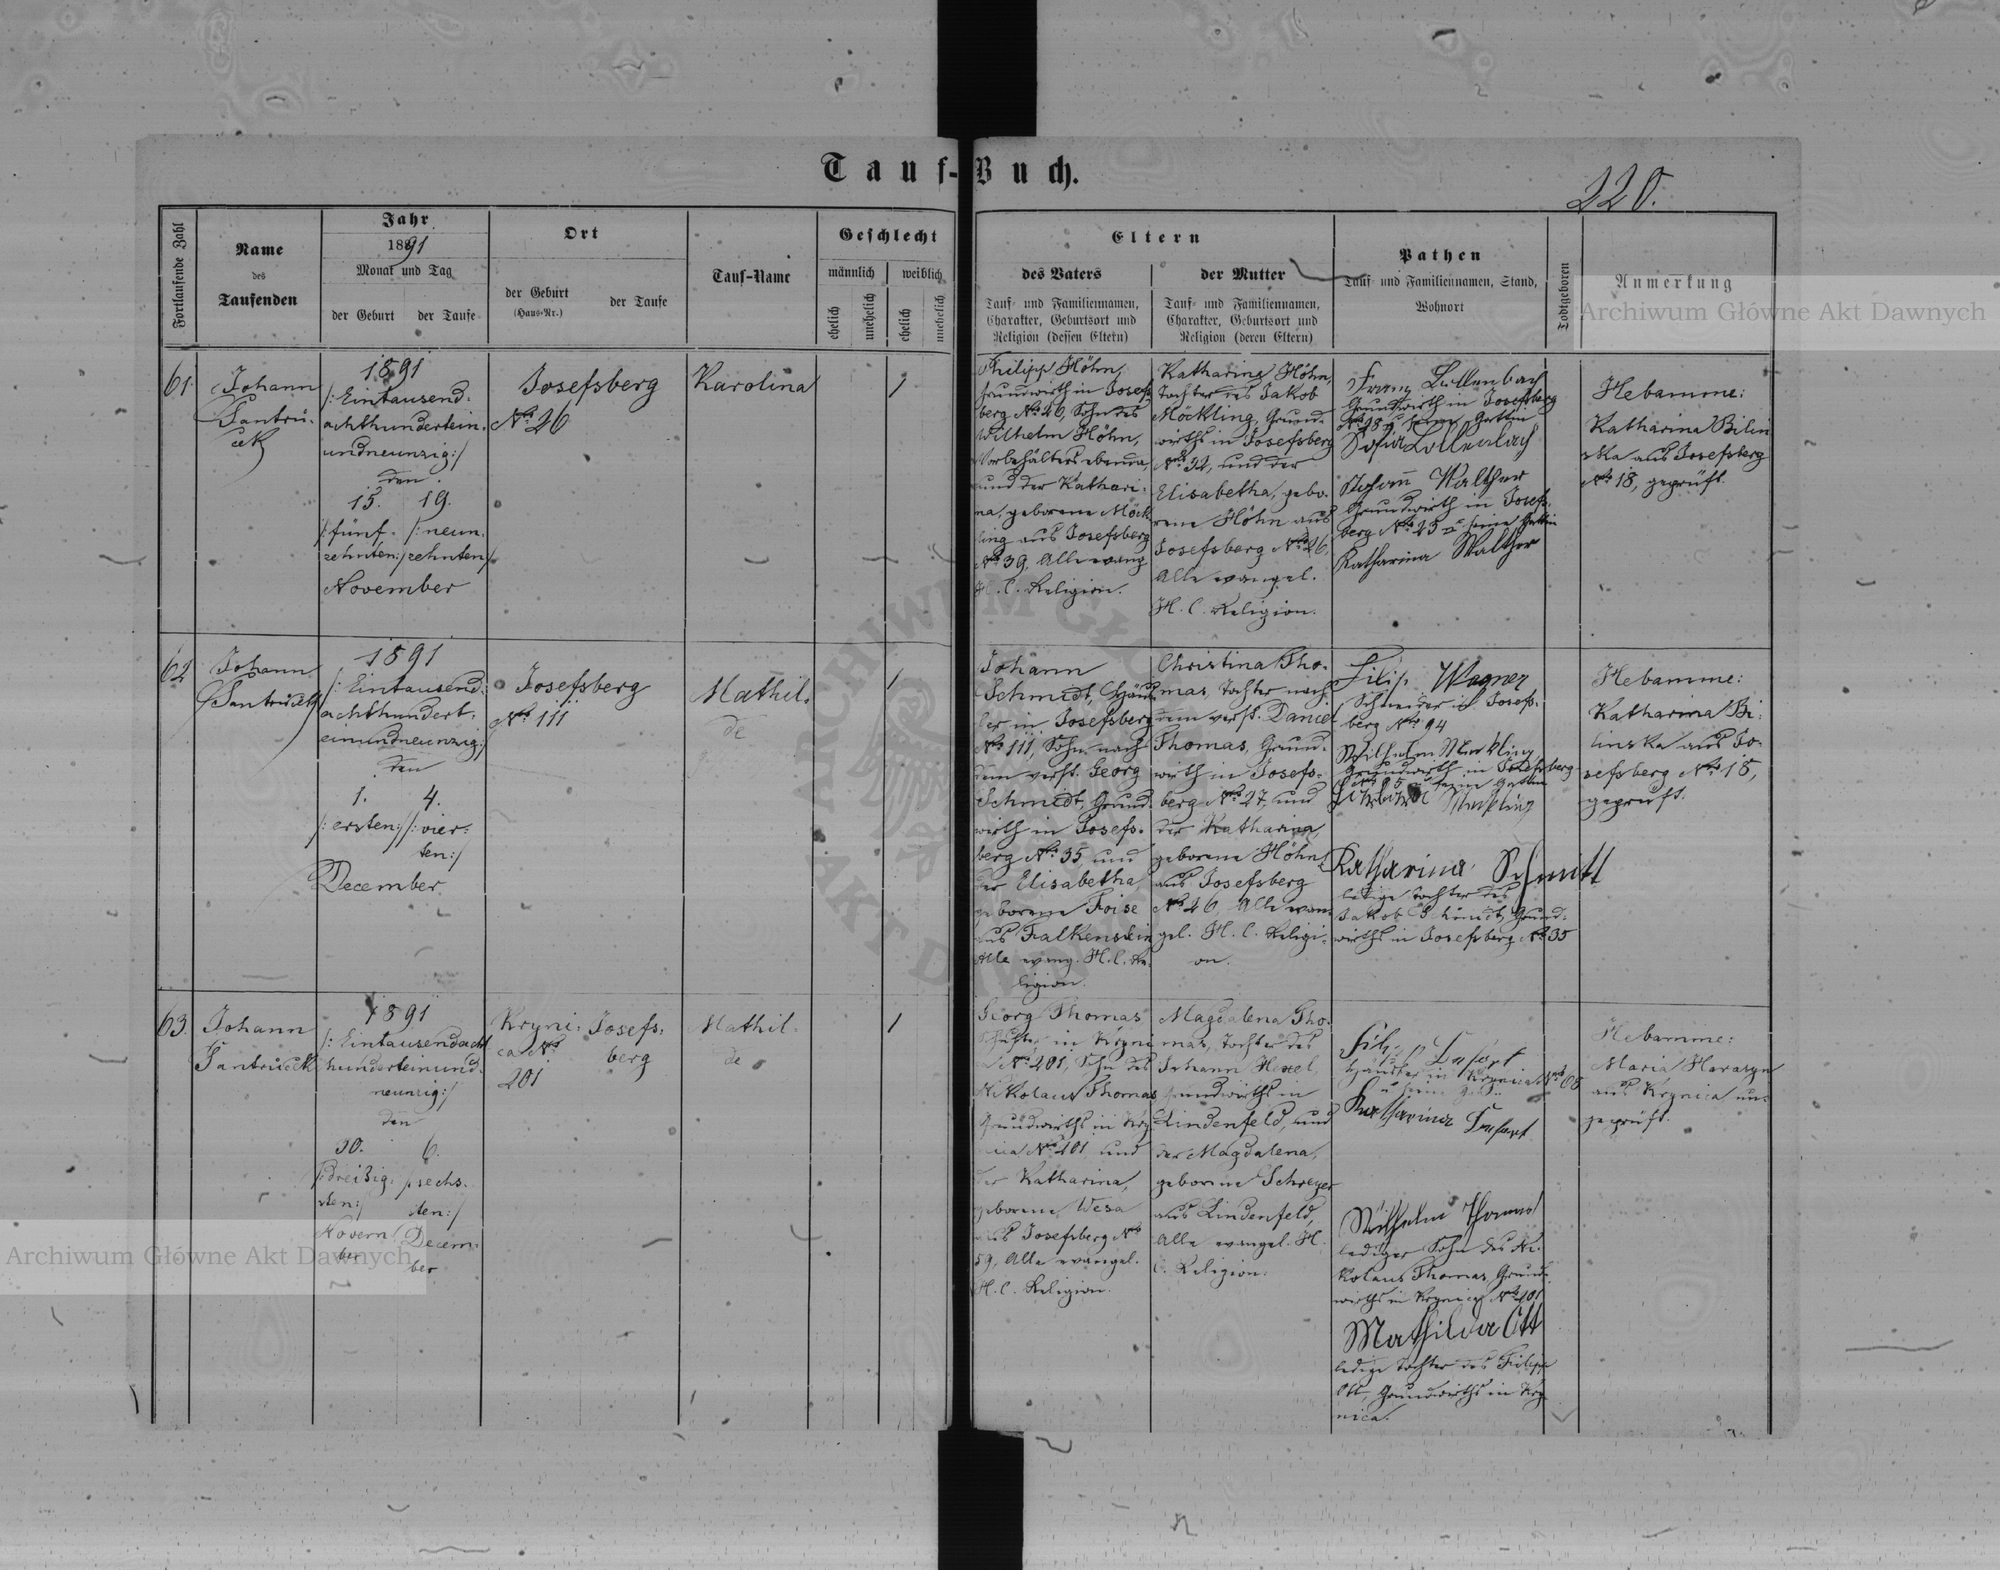 Tauf-Buch.
220.
Fortlaufende Zahl
Name
des
Taufenden
Jahr
1891
Monat und Tag
der Geburt
der Taufe
Ort
der Geburt
(Haus-Nr.)
der Taufe
Tauf-Name
Geschlecht
männlich
weiblich
ehelich
unehelich
ehelich
unehelich
Eltern
des Vaters
Tauf- und Familiennamen,
Charakter, Geburtsort und
Religion (dessen Eltern)
der Mutter
Tauf- und Familiennamen,
Charakter, Geburtsort und
Religion (deren Eltern)
Pathen
Tauf- und Familiennamen, Stand,
Wohnort
Todtgeboren
Anmerkung
Archiwum Główne Akt Dawnych
61.
Johann
1891
/: Eintausend-
achthundertein-
undneunzig:/
den
15. 19.
/: fünf- /: neun-
zehnten:/ zehnten:/
November
Josefsberg
№ 26
Karolina
1
Philipp Höhn,
Grundwirth in Josefs-
berg № 26, Sohn des
Wilhelm Höhn,
Vorbehälters ebenda,
und der Kathari-
na, geborene Möck
ling aus Josefsberg
№ 39, Alle evang
H. C. Religion.
Katharina Höhn,
Tochter des Jakob
Möckling, Grund-
wirths in Josefsberg
№ 32, und der
Elisabetha, gebo-
rene Höhn aus
Josefsberg № 26.
Alle evangel.
H. C. Religion.
Franz
Grundwirth in Josefsberg
Sofia
Johann Walther
Grundwirth in Josefs-
berg № 25 u. seine Gattin
Katharina Walther
Hebamme:
Katharina Bilin
ska aus Josefsberg
№ 18, geprüft.
62
Johann
1891
/: Eintausend-
achthundert-
einundneunzig:/
den
1. 4.
/: ersten:/ /: vier-
ten:/
December.
Josefsberg
№ 111
Mathil-
de
1
Johann
Schmidt, Häus-
ler in Josefsberg
№ 111, Sohn nach
dem verst. Georg
Schmidt, Grund-
wirth in Josefs-
berg № 35, und
der Elisabetha,
geborene Foise
aus Falkenstein
Alle evang. H. C. Re-
ligion.
Christina Tho-
mas, Tochter nach
dem verst. Daniel
Thomas, Grund-
wirth in Josefs-
berg № 27, und
der Katharina,
geborene Höhn,
aus Josefsberg
№ 26, Alle evan-
gel. H. C. Religi-
on.
Filip Wagner
Schneider in Josefs-
berg № 94
Wilhelm
Grundwirth in Josefsberg
Katharina Schmitt
ledige Tochter des
Jakob Schmidt, Grund-
wirths in Josefsberg № 35
Hebamme:
Katharina Bi-
linska aus Jo-
sefsberg № 18,
geprüft.
63.
Johann
1891
/: Eintausendacht
hunderteinund-
neunzig:/
den
30. 6.
/: dreißig- /: sechs-
sten:/ ten:/
Novem Decem-
ber ber
Kryni-
ca №
201
Josefs-
berg
Mathil-
de
1
Georg Thomas
in Kryni
№ 201, Sohn des
Nikolaus Thomas
Grundwirths in Kry
nica № 201, und
der Katharina,
geborene Wesa
aus Josefsberg №
59, Alle evangel.
H. C. Religion.
Magdalena Tho-
mas, Tochter des
Johann Hexel,
Grundwirths in
Lindenfeld, und
der Magdalena,
geborene Schreyer
aus Lindenfeld,
Alle evangel. H.
C. Religion.
Häusler in Krynica
Katharina
Wilhelm Thomas
lediger Sohn des Ni-
kolaus Thomas, Grund-
wirths in Krynica № 201
Mathilda Ott
ledige Tochter des Filipp
Ott, Grundwirths in Kry-
nica.
Hebamme:
Maria Harasyn
aus Krynica un-
geprüft.
Archiwum Główne Akt Dawnych
ARCHIWUM GŁÓWNE
AKT DAWNYCH